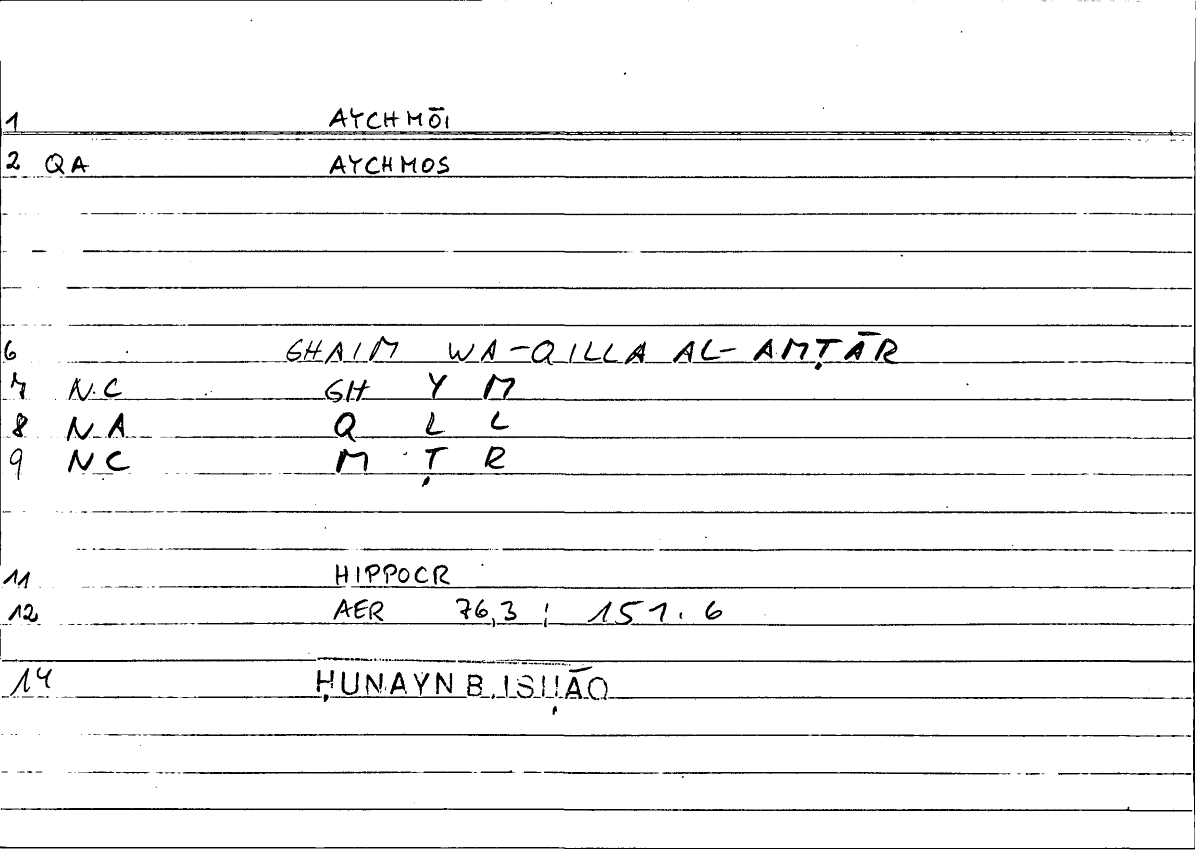 1 AYCHMŌI
2 QA AYCHMOS
6 GHAIM WA-QILLA AL-AMṬĀR
7 N.C GH Y M
8 NA Q L L
9 NC M Ṭ R
11 HIPPOCR
12 AER 76,3 ; 151.6
14 ḤUNAYN B. ISḤĀQ